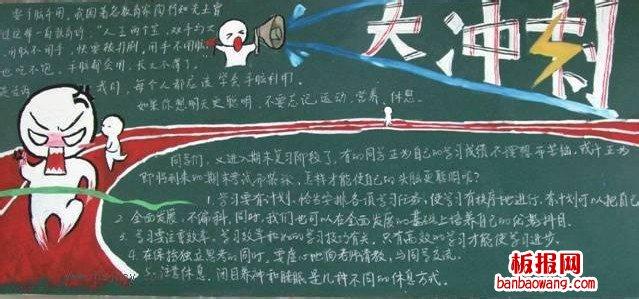 大冲刺
要手脑并用,我国著名教育家陶行知先生曾
过这样一首歌诀:“人生两个宝,双手与
用脑不用手,快要被打倒,用手不用脑,
也吃不饱。手脑都会用,
我们,每个人都应该学会手脑并用。
如果你想明天更聪明,不要忘记运动,营养,休息。
同学们,又进入期末复习阶段了,有的同学正为自己的学习成绩不理想而苦恼,或许正为
即将到来的期末考试而紧张,怎样才能使自己的头脑更聪明呢?
1.学习要有计划,恰当安排各项学习任务,使学习有秩序地进行。有计划可以把自己
2.全面发展,不偏科,同时,我们也可以在全面发展的基础上培养自己的优势科目.
3.学习注重效率,学习效率和学习技巧有关,只有高效的学习才能使学习进步。
4.在保持独立思考的同时,要虚心地向老师请教,与同学交流。
5.注意休息,闭目养神和睡眠是几种不同的休息方式。
板报网
banbaowang.com